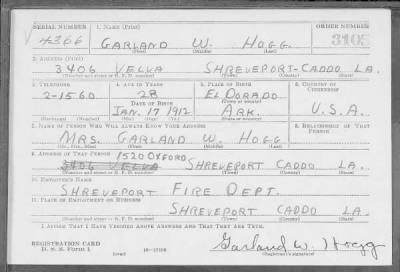 SERIAL NUMBER 1. NAME (Print) ORDER NUMBER
4366 GARLAND W. HOGG 3105
(First) (Middle) (Last)
2. ADDRESS (Print)
3406 VELVA SHREVEPORT-CADDO LA.
(Number and street or R. F. D. number) (Town) (County) (State)
3. TELEPHONE 4. AGE IN YEARS 5. PLACE OF BIRTH 6. COUNTRY OF CITIZENSHIP
28 EL DORADO
2-1560 DATE OF BIRTH (Town or county)
JAN. 17 1912 ARK. U.S.A.
(Exchange) (Number) (Mo.) (Day) (Yr.) (State or country)
7. NAME OF PERSON WHO WILL ALWAYS KNOW YOUR ADDRESS 8. RELATIONSHIP OF THAT PERSON
MRS. GARLAND W. HOGG
(Mr., Mrs., Miss) (First) (Middle) (Last)
9. ADDRESS OF THAT PERSON 1520 OXFORD
3406 VELVA SHREVEPORT CADDO LA.
(Number and street or R. F. D. number) (Town) (County) (State)
10. EMPLOYER'S NAME
SHREVEPORT FIRE DEPT.
11. PLACE OF EMPLOYMENT OR BUSINESS
SHREVEPORT CADDO LA.
(Number and street or R. F. D. number) (Town) (County) (State)
I AFFIRM THAT I HAVE VERIFIED ABOVE ANSWERS AND THAT THEY ARE TRUE.
REGISTRATION CARD
D. S. S. Form 1 Garland W. Hogg
(over) (Registrant's signature)